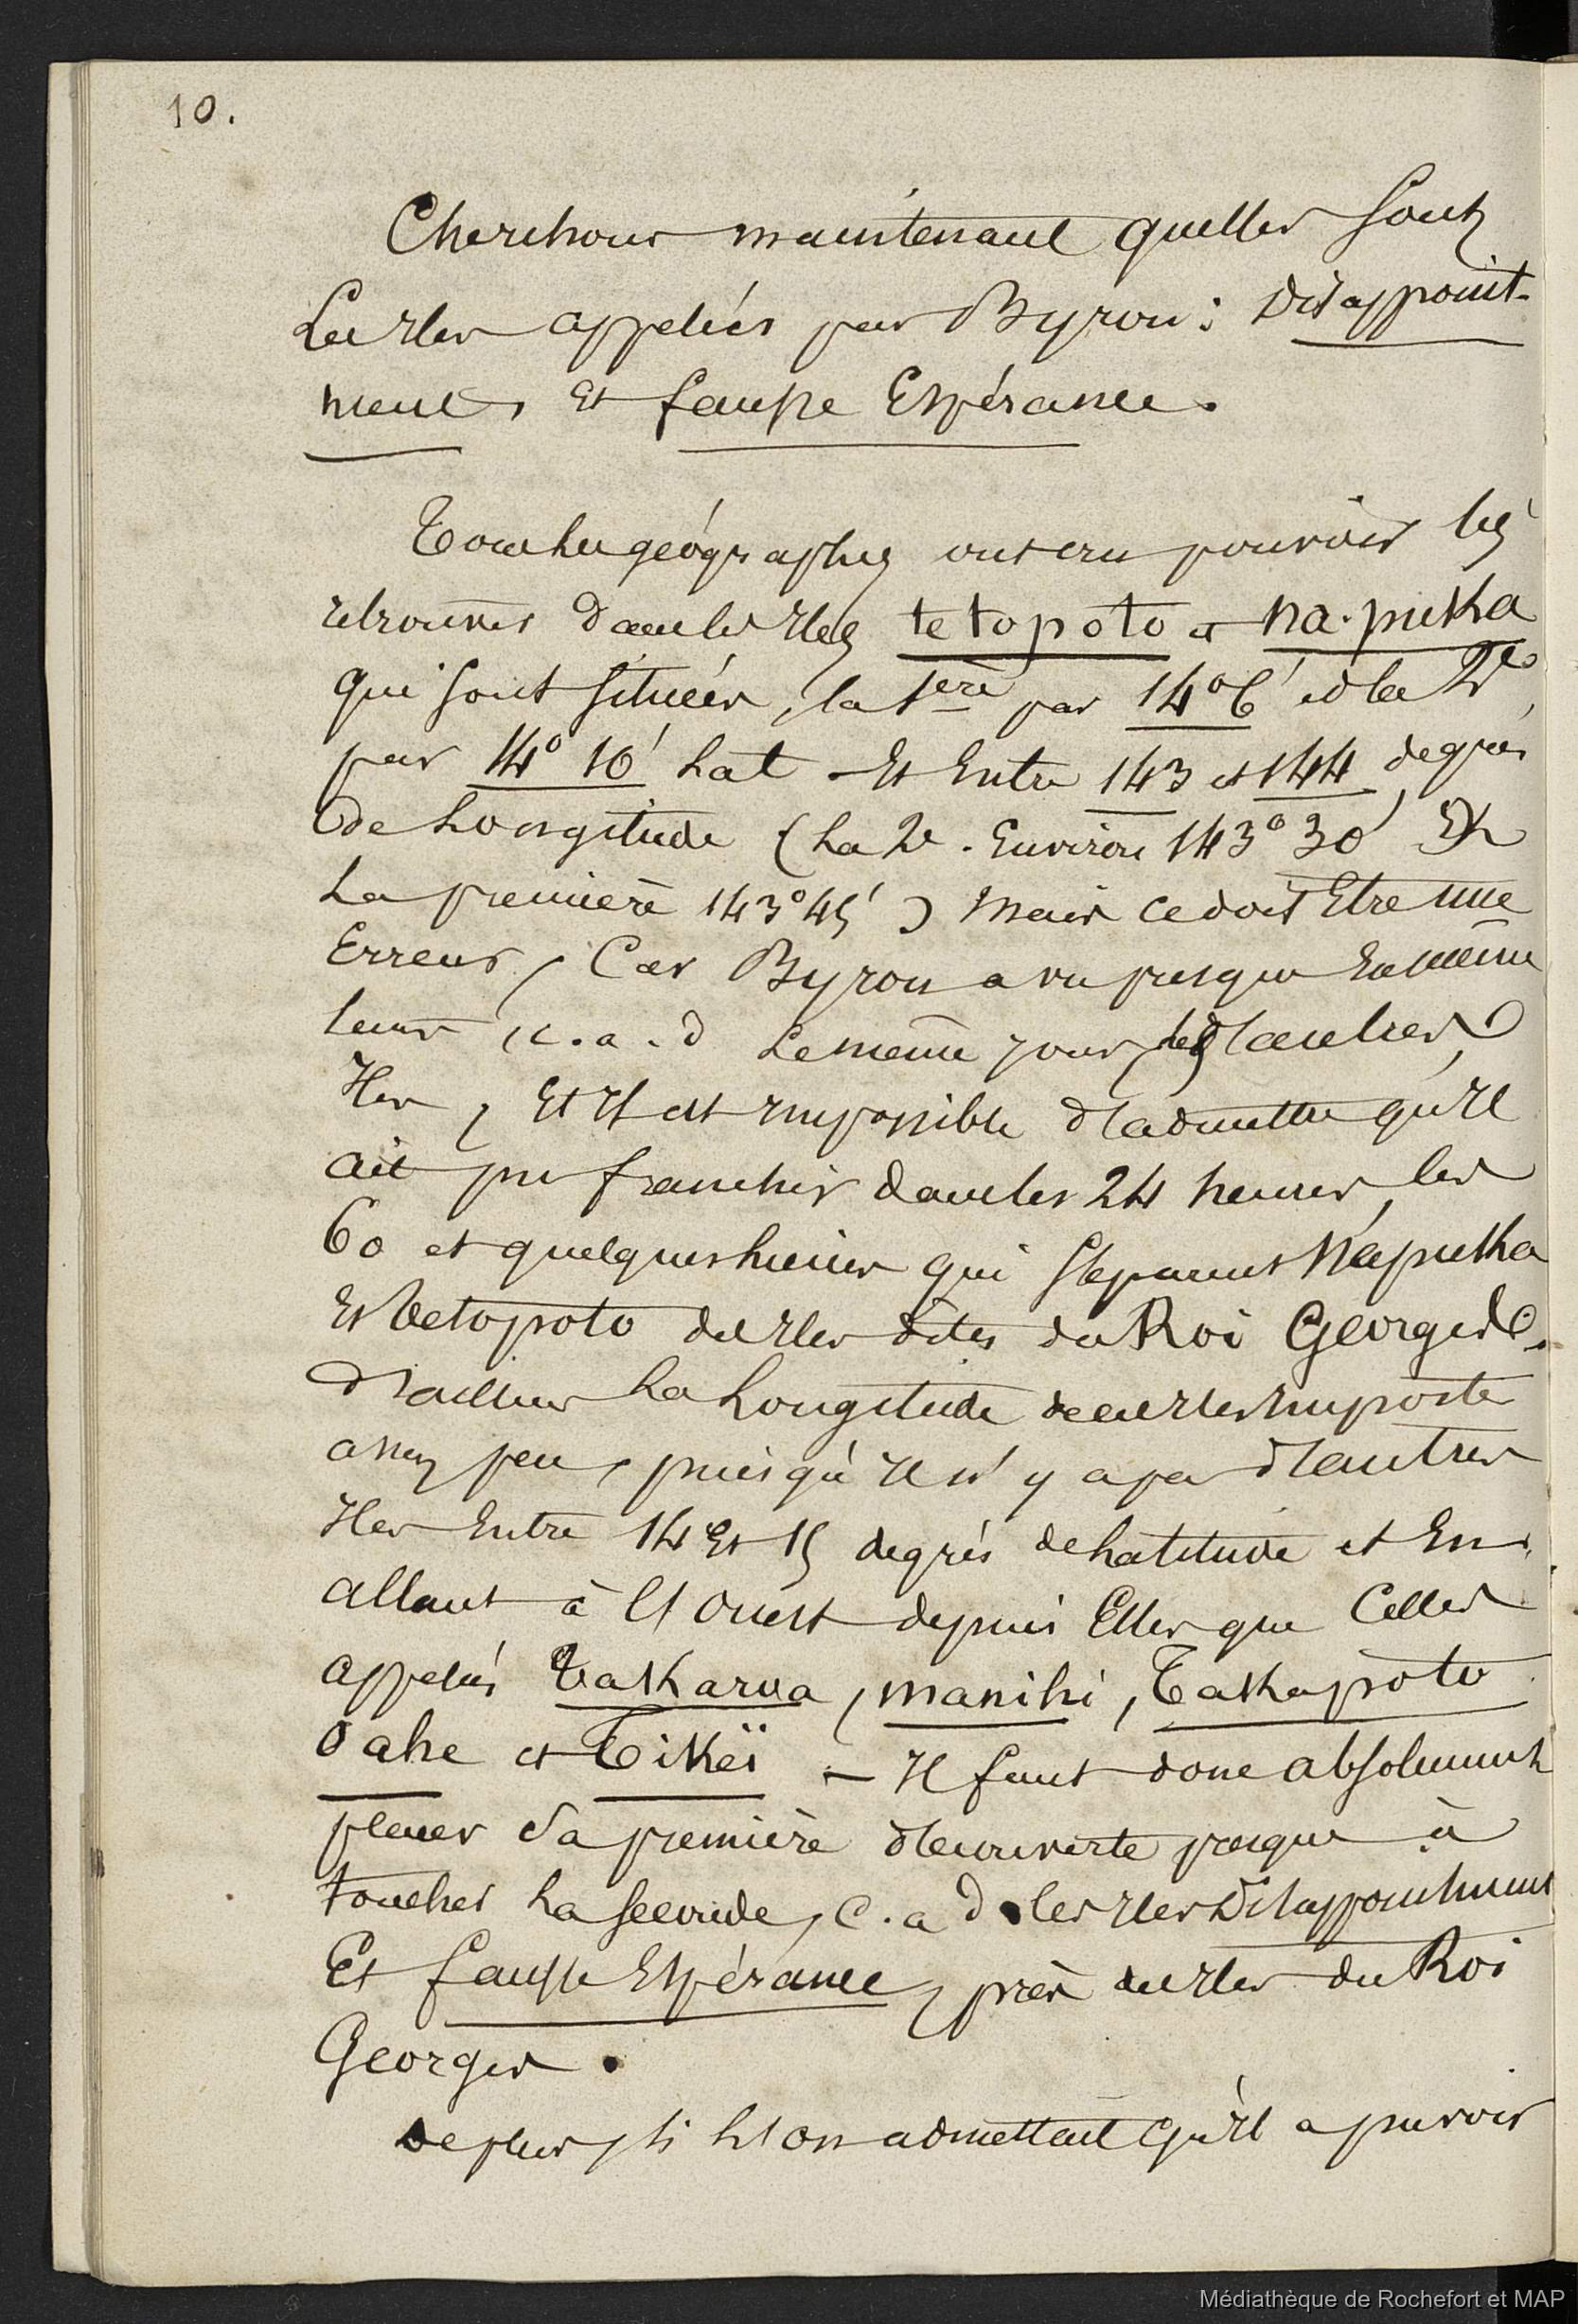 10.
Cherchons maintenant quelles sont
les Iles appelées par Byron : Disappoint-
ment, et fausse Espérance.
Tous les géographes ont cru pouvoir les
retrouver dans les Iles te topoto et na-puka
qui sont situées, la 1ere par 14° 6' et la 2e,
par 14° 10' Lat - Et Entre 143 et 144 degrés
de Longitude (La 2e. Environ 143° 30' Et
La première 143° 45') Mais ce doit Etre une
Erreur, Car Byron a vu presque En même
temps, c. a. d le même jour, les d'autres
Iles, Et Il est impossible d'admettre qu'Il
ait pu franchir dans les 24 heures, les
60 et quelques lieues qui séparent Napuka
Et tetopoto des Iles dites du Roi Georges.
D'ailleurs La Longitude de ces Iles importe
assez peu, puisqu'Il n'y a pas d'autres
Iles Entre 14 Et 15 degrés de Latitude et En
allant à l'ouest depuis Elles que Celles
appelées Takaroa, manihi, Takapoto
Oahe et Tikeï - Il faut donc absolument
placer sa première découverte presque à
toucher La seconde, c. a d les Iles Disappointment
Et fausse Espérance, près des Iles du Roi
Georges.
De plus, si l'on admettait qu'Il a pu voir
Médiathèque de Rochefort et MAP